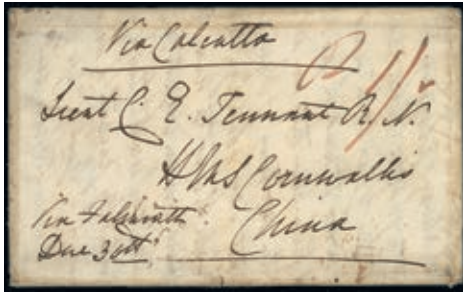 Via Calcutta
P 1/-
Lieut C. E. Tennant R. N.
HMS Cornwallis
China
Via Falmouth